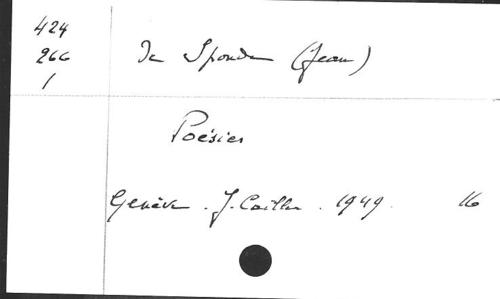 424
266
1
De Sponde (Jean)
Poésies
Genève . J. Cailler . 1949. 16